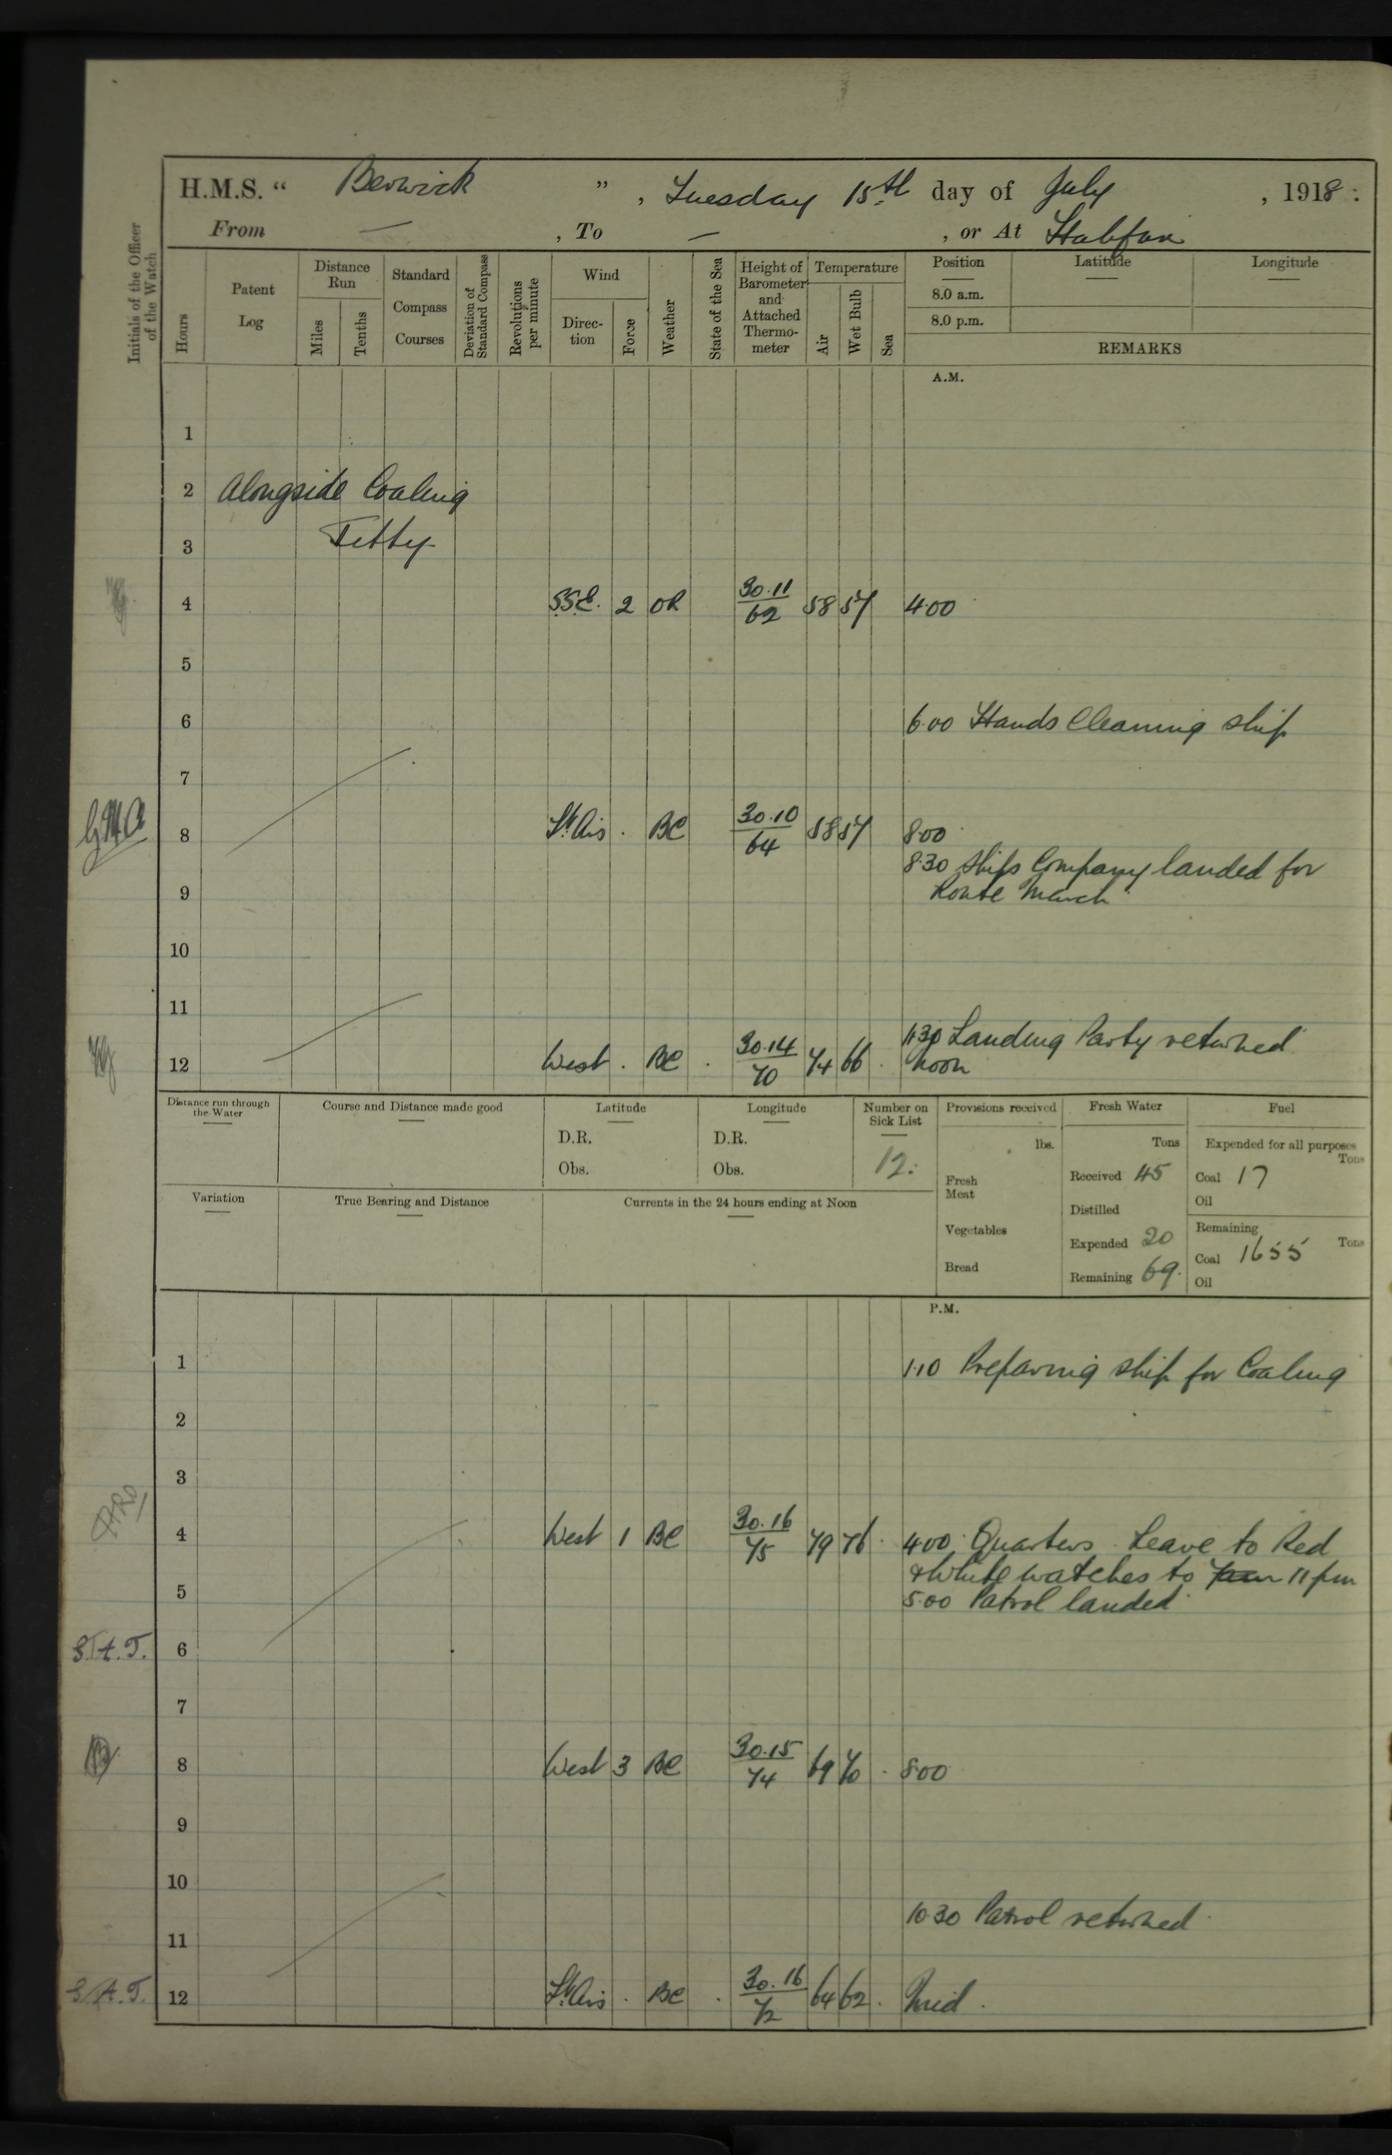 H.M.S. “ Berwick ” , Tuesday 15th day of July , 1918 :
From — , To — , or At Halifax
Initials of the Officer of the Watch
Hours
Patent Log
Distance Run
Miles
Tenths
Standard Compass Courses
Deviation of Standard Compass
Revolutions per minute
Wind
Direction
Force
Weather
State of the Sea
Height of Barometer and Attached Thermometer
Temperature
Air
Wet Bulb
Sea
Position Latitude Longitude
8.0 a.m.
8.0 p.m.
REMARKS
A.M.
1
2 Alongside Coaling
3 Jetty
4 SSE. 2 OR 30.11/62 58 57 4.00
5
6 6.00 Hands Cleaning ship
7
GHA 8 Lt Airs . BC 30.10/64 58 57 8.00
8.30 Ships Company landed for
9 Route March
10
11
11.30 Landing Party returned
12 West . BC . 30.14/70 74 66 . Noon
Distance run through the Water
Course and Distance made good
Latitude
D.R.
Obs.
Longitude
D.R.
Obs.
Number on Sick List
12.
Provisions received
lbs.
Fresh Meat
Vegetables
Bread
Fresh Water
Tons
Received 45
Distilled
Expended 20
Remaining 69.
Fuel
Expended for all purposes
Tons
Coal 17
Oil
Remaining
Tons
Coal 1655
Oil
Variation
True Bearing and Distance
Currents in the 24 hours ending at Noon
P.M.
1 1.10 Preparing ship for Coaling
2
3
4 West 1 BC 30.16/75 79 76 . 4.00 Quarters. Leave to Red
& White watches to 11 pm
5 5.00 Patrol landed
S.A.T. 6
7
8 West 3 BC 30.15/74 69 70 . 8.00
9
10
10.30 Patrol returned
11
S.A.T. 12 Lt Airs . BC . 30.16/72 64 62 . Mid.